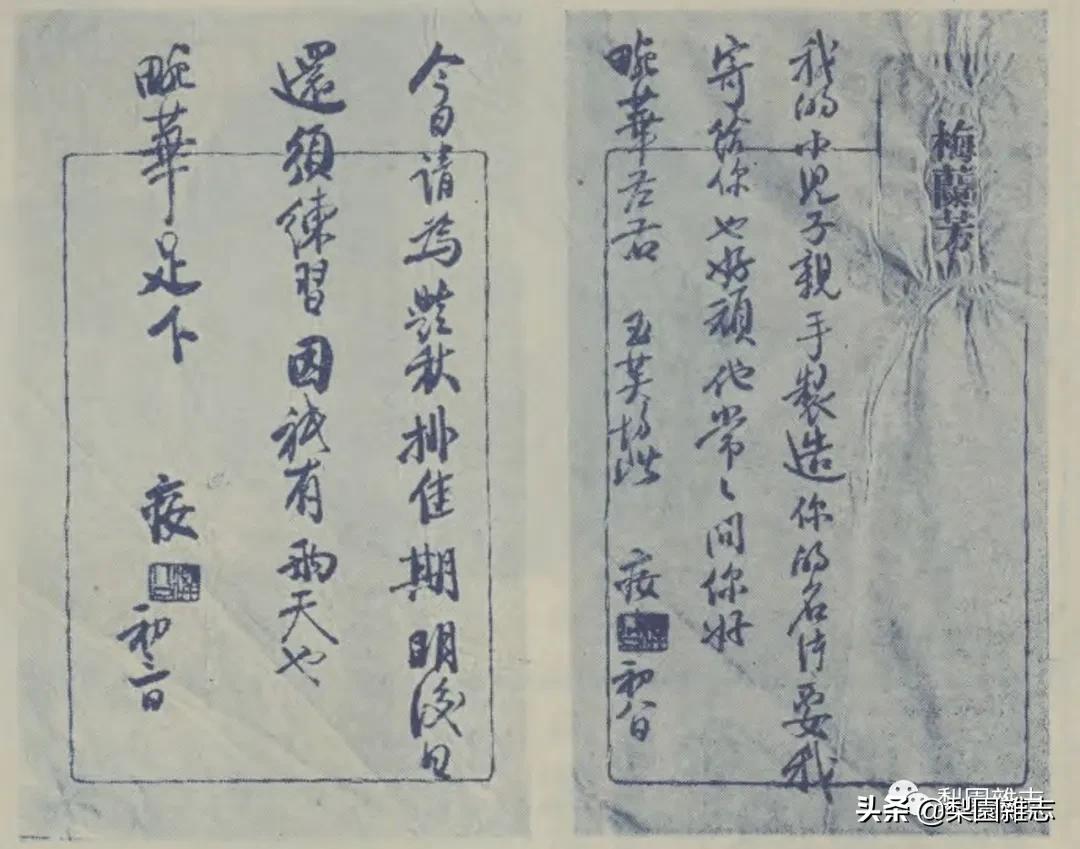 梅蘭芳
我的小兒子親手製造你的名片要我
寄給你也好頑他常〻問你好
畹華左右 玉芙均此 癭 初八日
今日請為豔秋排佳期明後日
還須練習因祗有兩天也
畹華足下 癭 初二日
梨園雜志
头条 @梨園雜志